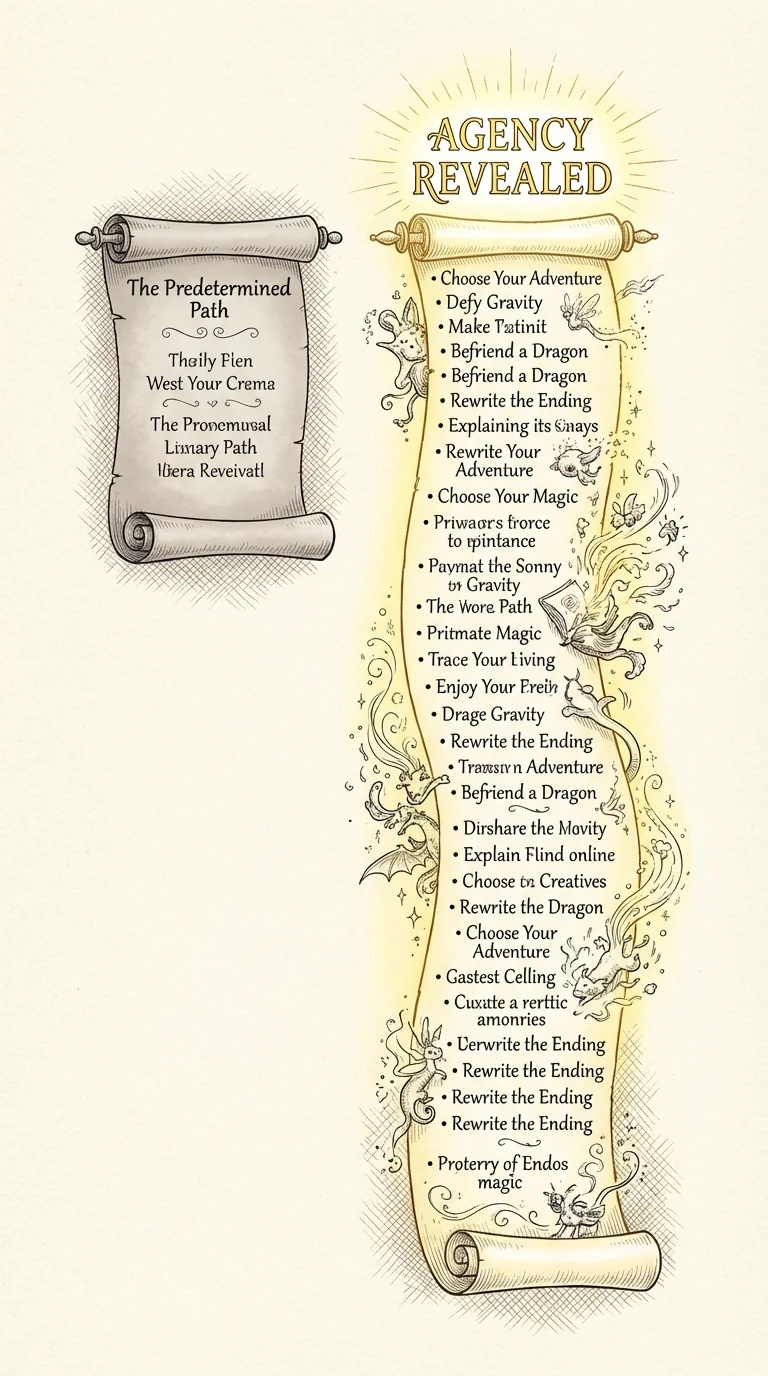 The Predetermined
Path
West Your Crema
The
Path
AGENCY
REVEALED
• Choose Your Adventure
• Defy Gravity
• Make
• Befriend a Dragon
• Befriend a Dragon
• Rewrite the Ending
• Explaining its
• Rewrite Your
Adventure
• Choose Your Magic
• force
to
• the Sonny
Gravity
• The Path
• Pritmate Magic
• Trace Your Living
• Enjoy Your
• Drage Gravity
• Rewrite the Ending
• Adventure
• Befriend a Dragon
• Dirshare the Movity
• Explain Flind online
• Choose Creatives
• Rewrite the Dragon
• Choose Your
Adventure
• Gastest Celling
• a
amonries
• the Ending
• Rewrite the Ending
• Rewrite the Ending
• Rewrite the Ending
• Proterry of Endos
magic